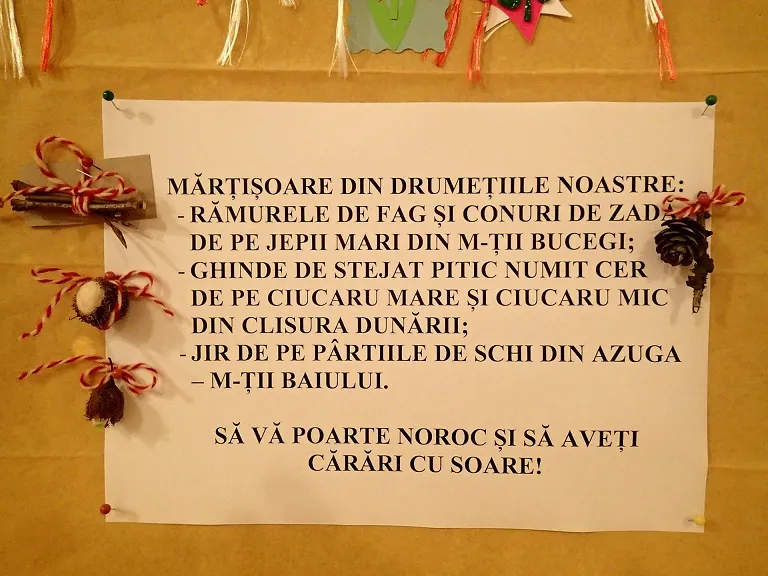 MĂRȚIȘOARE DIN DRUMEȚIILE NOASTRE:
- RĂMURELE DE FAG ȘI CONURI DE ZADĂ
DE PE JEPII MARI DIN M-ȚII BUCEGI;
- GHINDE DE STEJAT PITIC NUMIT CER
DE PE CIUCARU MARE ȘI CIUCARU MIC
DIN CLISURA DUNĂRII;
- JIR DE PE PÂRTIILE DE SCHI DIN AZUGA
– M-ȚII BAIULUI.
SĂ VĂ POARTE NOROC ȘI SĂ AVEȚI
CĂRĂRI CU SOARE!